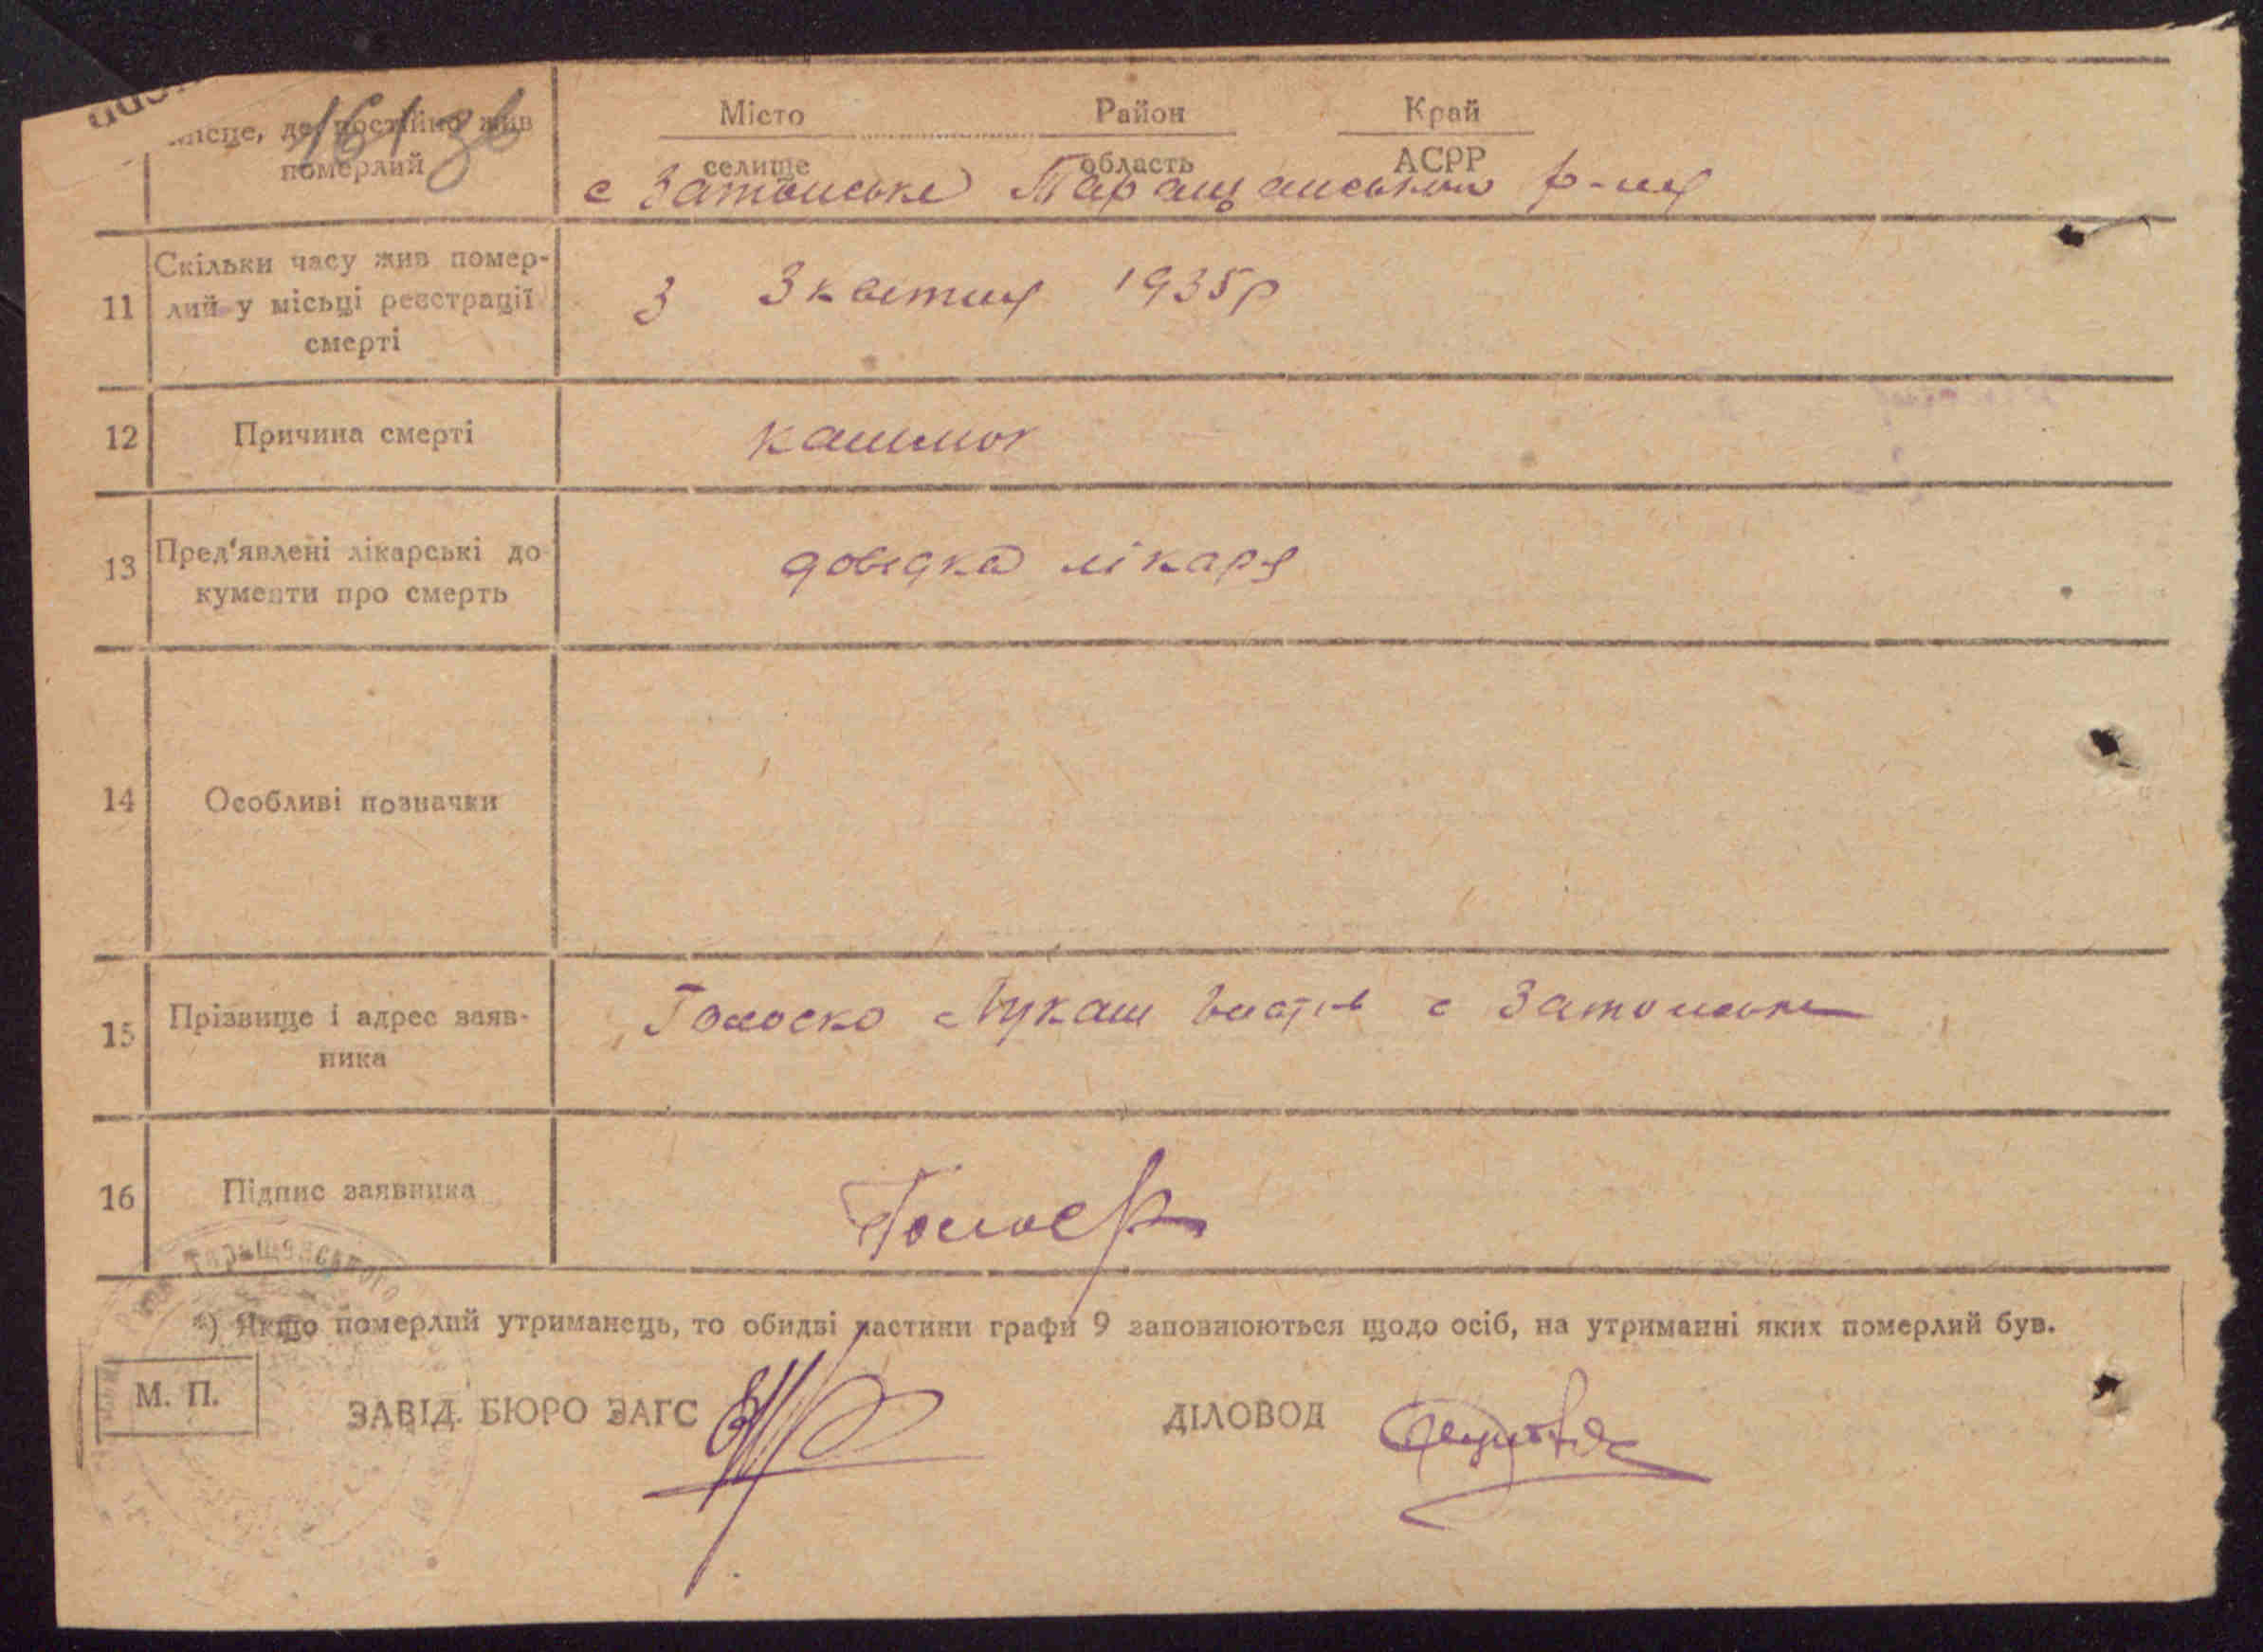 161 зв
місце, де постійно жив
померлий
Місто Район Край
селище область АСРР
с Затонське Таращанського р-ну
11 Скільки часу жив помер-
лий у місьці реєстрації
смерті
З 3 квітня 1935р
12 Причина смерті
кашлюк
13 Пред'явлені лікарські до
кументи про смерть
довідка лікаря
14 Особливі позначки
15 Прізвище і адрес заяв-
ника
Голоско Лукаш с Затонське
16 Підпис заявника
Таращанського
*) Якщо померлий утриманець, то обидві частини графи 9 заповнюються щодо осіб, на утриманні яких померлий був.
М. П.
ЗАВІД. БЮРО ЗАГС
ДІЛОВОД